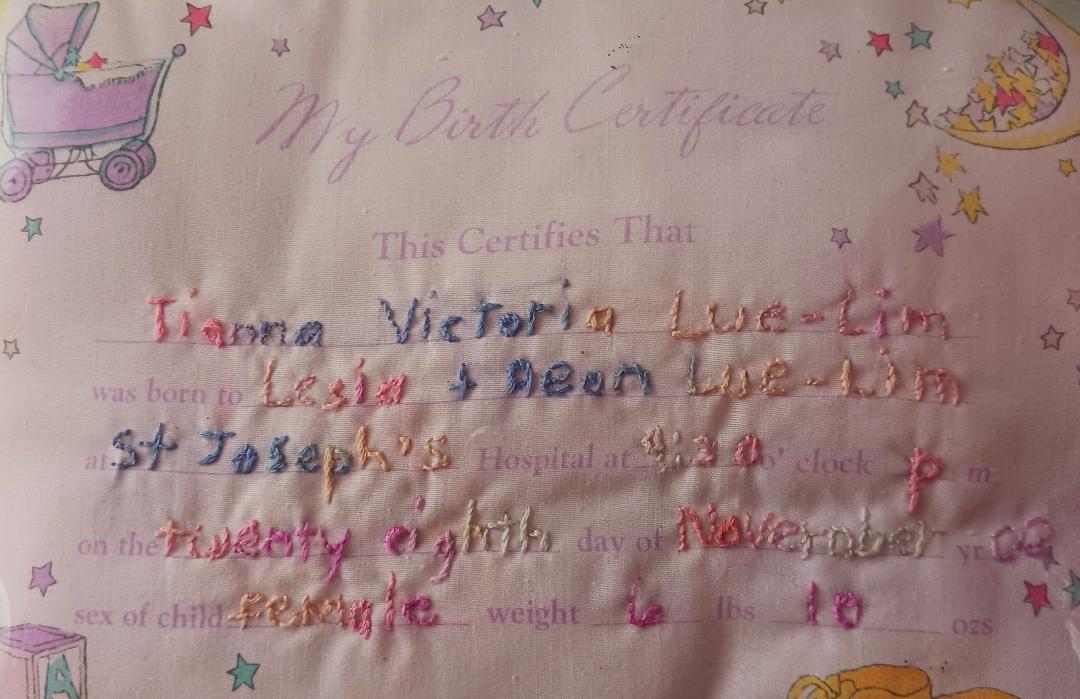 My Birth Certificate
This Certifies That
Tianna Victoria Lue-Lim
was born to Lesia + Aeon Lue-Lim
at St Joseph's Hospital at 9:30 o' clock p m
on the twenty eighth day of November yr 02
sex of child female weight 6 lbs 10 ozs
A